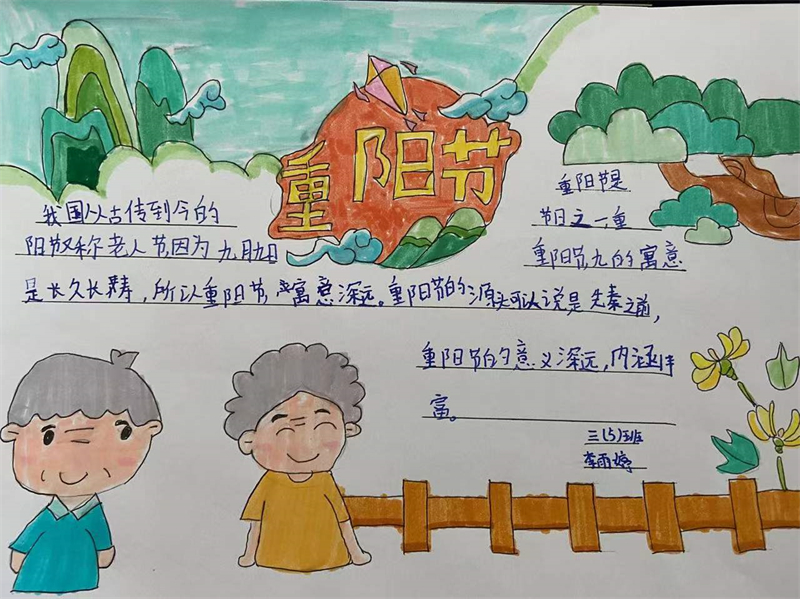 重阳节
重阳节是
我国从古传到今的
节日之一重
阳节又称老人节因为九月九日
重阳节九的寓意
是长久长寿，所以重阳节寓意深远。重阳节的源头可以说是先秦之前，
重阳节的意义深远，内涵丰
富。
三(5)班
李雨婷